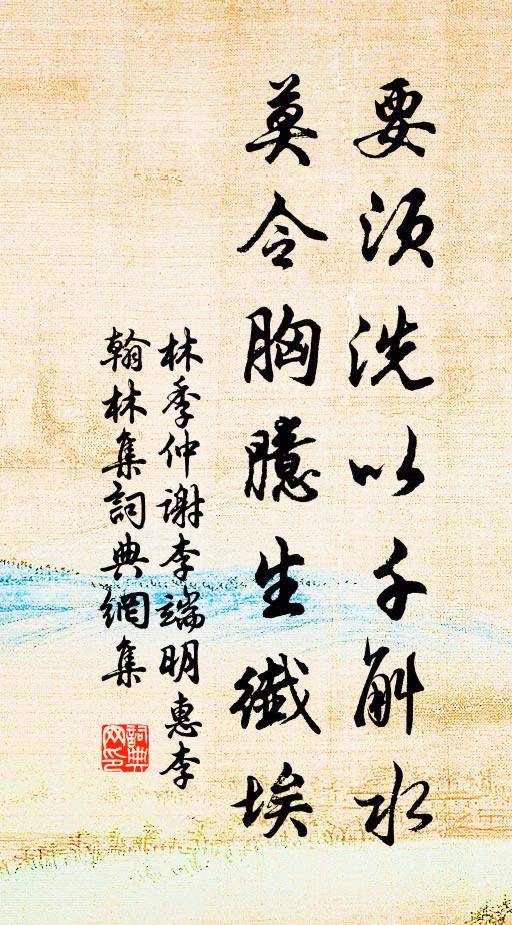 要须洗以千斛水
莫令胸臆生纖埃
林季仲谢李端明惠李
翰林集詞典網集
詞典
网印